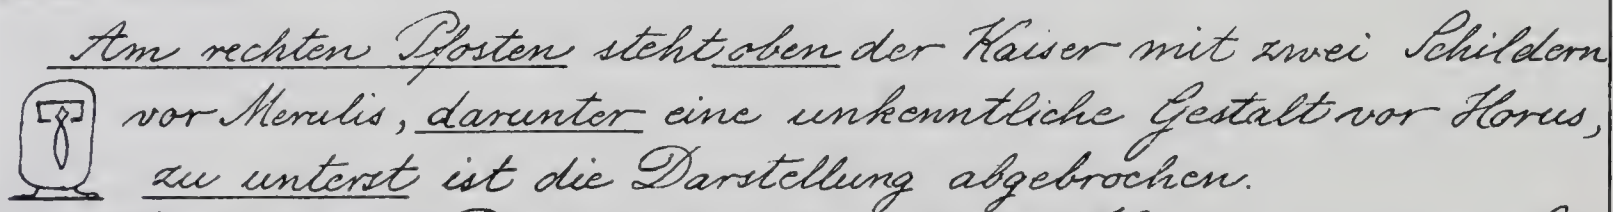 Am rechten Pfosten steht oben der Kaiser mit zwei Schildern
vor Merulis, darunter eine unkenntliche Gestalt vor Horus,
zu unterst ist die Darstellung abgebrochen.